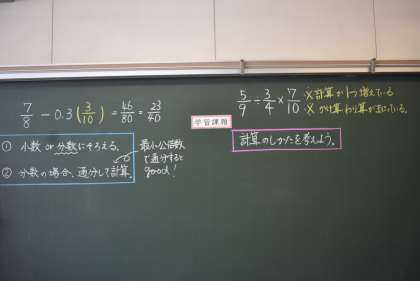 7/8 - 0.3 (3/10) = 46/80 = 23/40
① 小数 or 分数にそろえる。
② 分数の場合、通分して計算。
最小公倍数
で通分すると
good!
学習課題
5/9 ÷ 3/4 × 7/10
※計算が1つ増えている
※かけ算わり算が混じっている。
計算のしかたを考えよう。